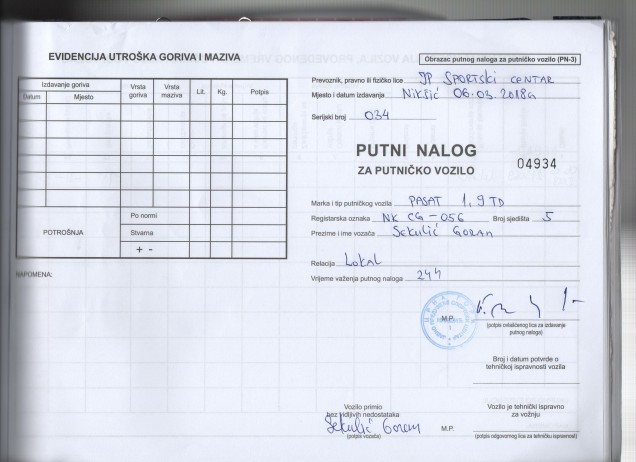 EVIDENCIJA UTROŠKA GORIVA I MAZIVA
Izdavanje goriva
Datum
Mjesto
Vrsta goriva
Vrsta maziva
Lit.
Kg.
Potpis
POTROŠNJA
Po normi
Stvarna
+ -
NAPOMENA:
Obrazac putnog naloga za putničko vozilo (PN-3)
Prevoznik, pravno ili fizičko lice JP SPORTSKI CENTAR
Mjesto i datum izdavanja Nikšić 06.03.2018g
Serijski broj 034
PUTNI NALOG
ZA PUTNIČKO VOZILO
04934
Marka i tip putničkog vozila PASAT 1,9 TD
Registarska oznaka NK CG-056 Broj sjedišta 5
Prezime i ime vozača Sekulić Goran
Relacija LOKAL
Vrijeme važenja putnog naloga 24h
M.P.
(potpis ovlašćenog lica za izdavanje
putnog naloga)
Broj i datum potvrde o
tehničkoj ispravnosti vozila
Vozilo primio
bez vidljivih nedostataka
Sekulić Goran
(potpis vozača)
M.P.
Vozilo je tehnički ispravno
za vožnju
(potpis odgovornog lica za tehničku ispravnost)